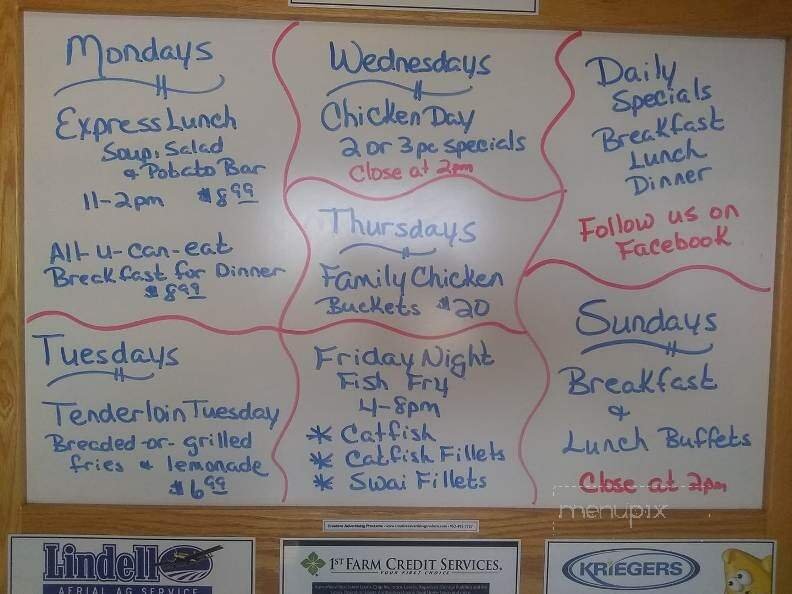 Mondays
Express Lunch
Soup, Salad
& Potato Bar
11-2pm $8.99
All-u-can-eat
Breakfast for Dinner
$8.99
Tuesdays
Tenderloin Tuesday
Breaded-or-grilled
fries & lemonade
$6.99
Wednesdays
Chicken Day
2 or 3 pc specials
Close at 2pm
Thursdays
Family Chicken
Buckets $20
Friday Night
Fish Fry
4-8pm
* Catfish
* Catfish Fillets
* Swai Fillets
Daily
Specials
Breakfast
Lunch
Dinner
Follow us on
Facebook
Sundays
Breakfast
&
Lunch Buffets
Close at 2pm
menupix
Lindell
AERIAL AG SERVICE
1ST FARM CREDIT SERVICES.
YOUR FIRST CHOICE
KRIEGERS